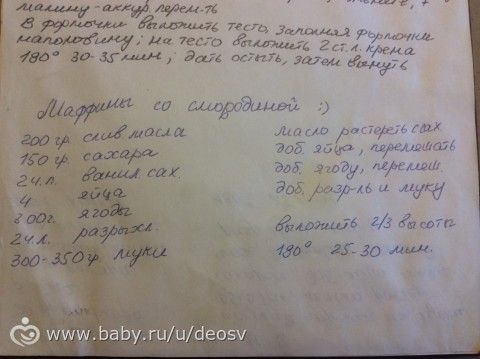 малину - аккур. перем-ть
В формочки выложить тесто, заполняя формочки
наполовину; на тесто выложить 2 ст. л. крема
180° 30-35 мин; дать остыть, затем вынуть
Маффины со смородиной :)
200 гр. слив масла
150 гр. сахара
2 ч.л. ванил сах.
4 яйца
300 г. ягоды
2 ч.л. разрыхл.
300-350 гр. муки
масло растереть сах.
доб. яйца, перемешать
доб. ягоду, перемеш.
доб. разр-ль и муку
выложить 2/3 высоты
180° 25-30 мин.
www.baby.ru/u/deosv